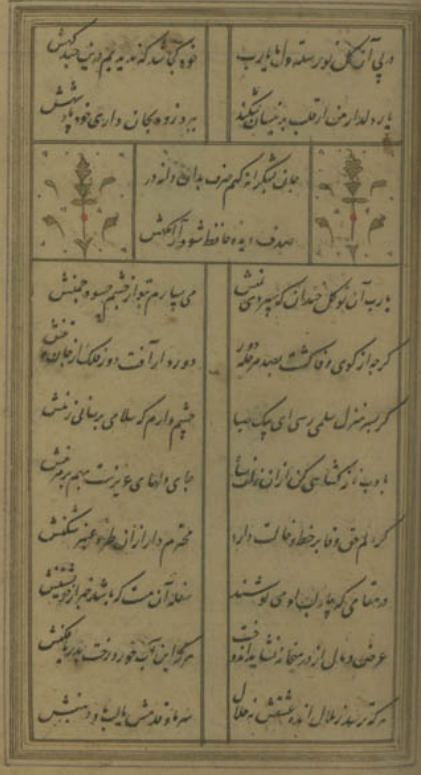 در پی آن گل نورسته دل ما یارب
خود کجا شد که ندیدیم درین چند گهش
یار دلدار من ار قلب بدینسان شکند
ببرد زود بجان داری خود پادشهش
جان بشکرانه کنم صرف بدان دانه در
صدف دیده حافظ شود آرامگهش
یارب آن نوگل خندان که سپردی بمنش
می سپارم بتو از چشم حسود چمنش
گرچه از کوی وفا گشت بصد مرحله دور
دور باد آفت دور فلک از جان و تنش
گر بسرمنزل سلمی رسی ای پیک صبا
چشم دارم که سلامی برسانی ز منش
بادب نافه گشایی کن ازان زلف سیاه
جای دلهای عزیزست بهم برمزنش
گو دلم حق وفا بر خط و خالت دارد
محترم دار ازان طره عنبر شکنش
در مقامی که بیاد لب او می نوشند
سفله آن مست که باشد خبر از خویشتنش
عرض و مال از در میخانه نشاید اندوخت
هر که این آب خورد رخت بدریا فکنش
هر که ترسد ز ملال انده عشقش نه حلال
سر ما و قدمش یا لب ما و دهنش